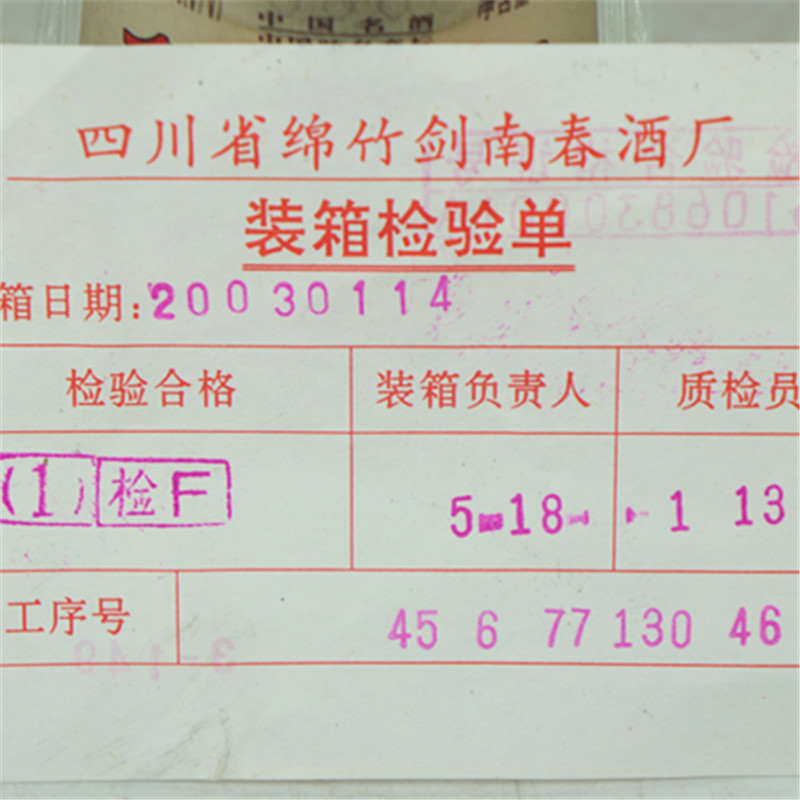 中国名酒
四川省绵竹剑南春酒厂
装箱检验单
箱日期:20030114
检验合格 装箱负责人 质检员
(1) 检F 5-18- 1 13
工序号 45 6 77 130 46